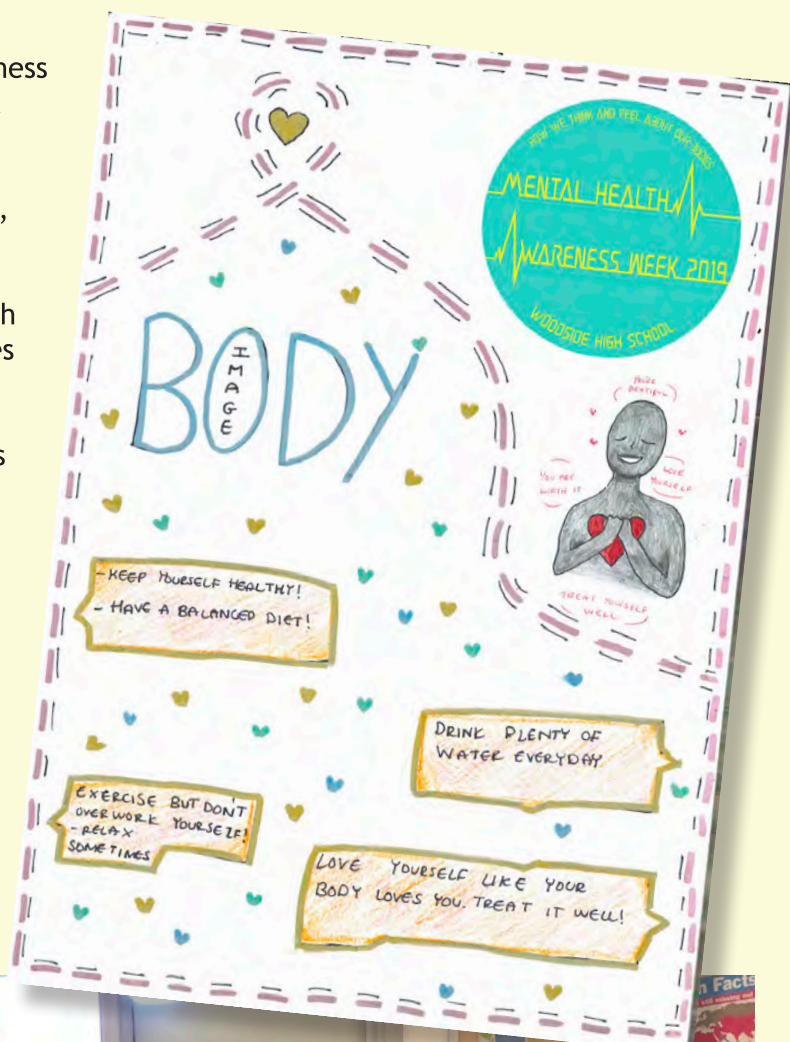 ness
,
h
es
s
HOW WE THINK AND FEEL ABOUT OUR BODIES
MENTAL HEALTH
AWARENESS WEEK 2019
WOODSIDE HIGH SCHOOL
BODY
IMAGE
YOU'RE
BEAUTIFUL
YOU ARE
WORTH IT
LOVE
YOURSELF
TREAT YOURSELF
WELL
- KEEP YOURSELF HEALTHY!
- HAVE A BALANCED DIET!
DRINK PLENTY OF
WATER EVERYDAY
EXERCISE BUT DON'T
OVERWORK YOURSELF!
- RELAX
SOMETIMES
LOVE YOURSELF LIKE YOUR
BODY LOVES YOU. TREAT IT WELL!
n Facts